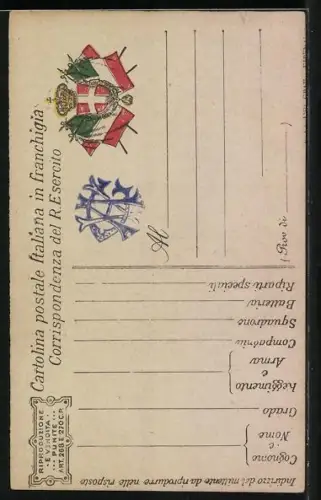 Cartolina postale Italiana in franchigia
Corrispondenza del R. Esercito
Al
(Prov di )
RIPRODUZIONE
E VENDITA
PUNITE
ART. 268 E 270 C.P.
Indirizzo del mittente da riprodurre nelle risposte
Cognome
e
Nome
Grado
Reggimento
e
Arma
Compagnia
Squadrone
Batteria
Riparti speciali